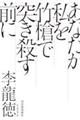 あなたが
私を
竹槍で
突き殺す
前に
李龍徳